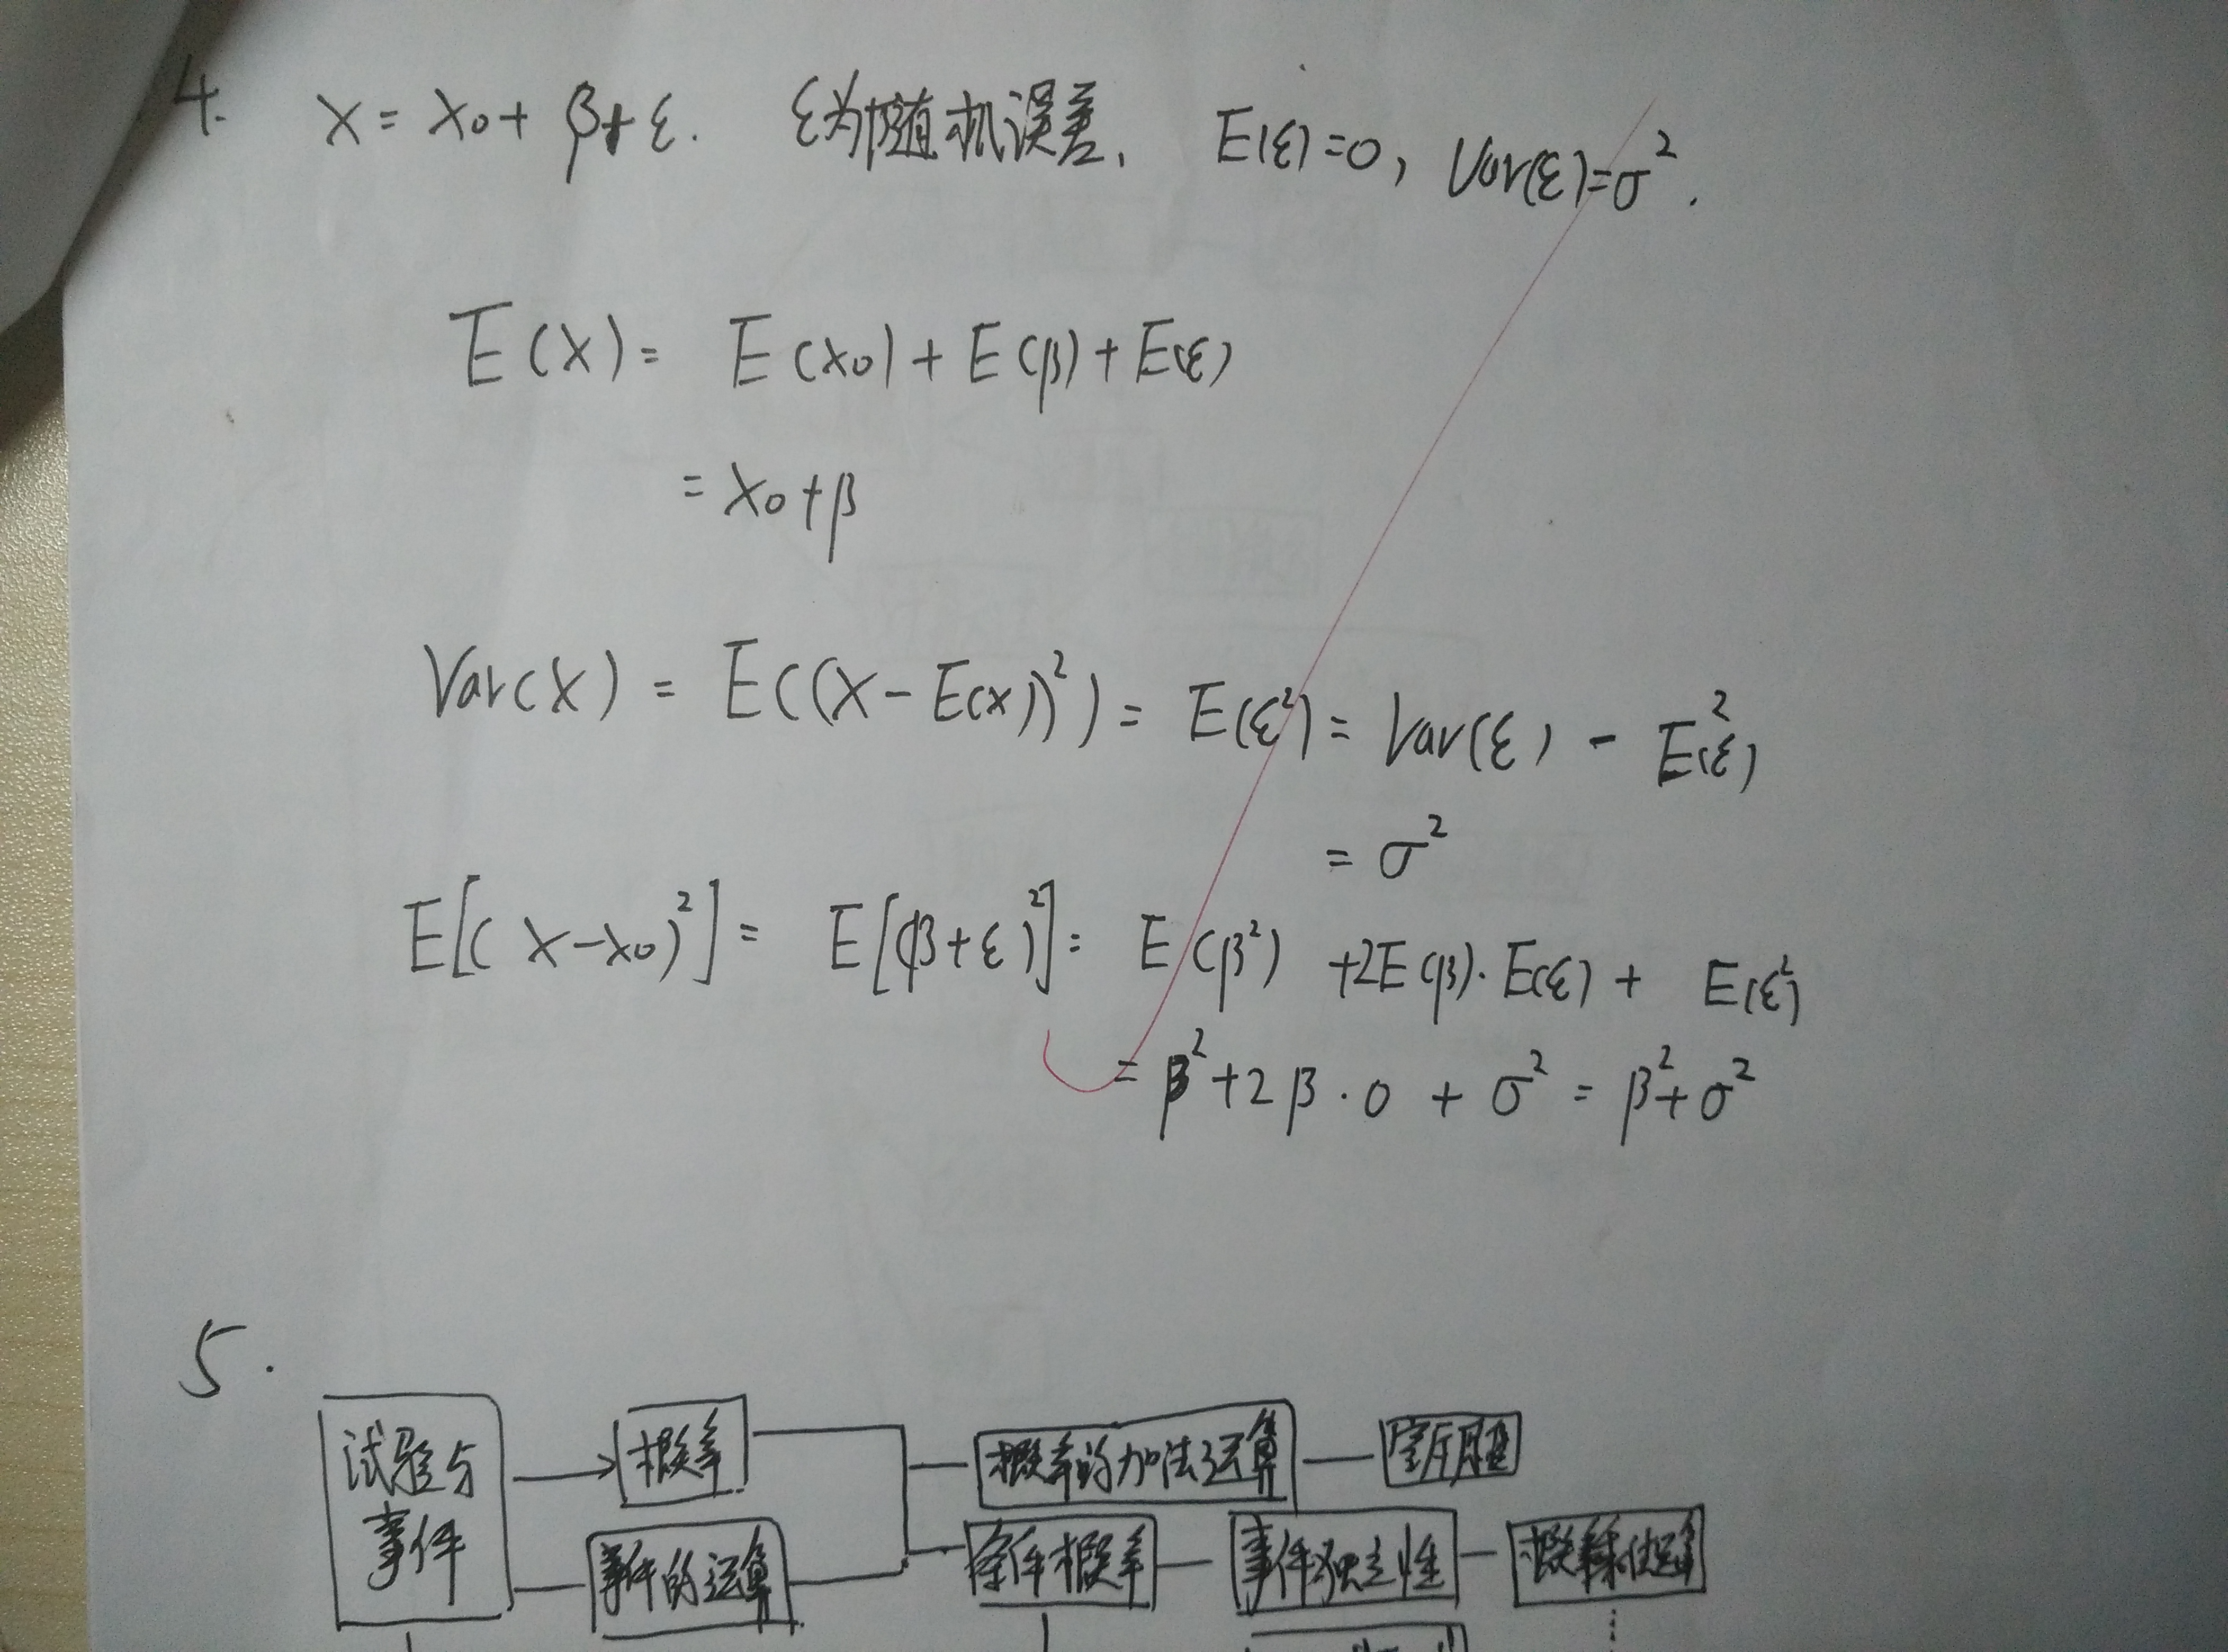 4. X = X₀ + β + ε. ε为随机误差, E(ε)=0, Var(ε)=σ².
E(X) = E(X₀) + E(β) + E(ε)
= X₀+β
Var(X) = E((X-E(X))²) = E(ε²) = Var(ε) - E²(ε)
= σ²
E[(X-X₀)²] = E[(β+ε)²] = E(β²) +2E(β)·E(ε) + E(ε²)
= β²+2β·0 + σ² = β²+σ²
5.
试验与事件 概率 概率的加法运算
事件的运算 条件概率 事件独立性